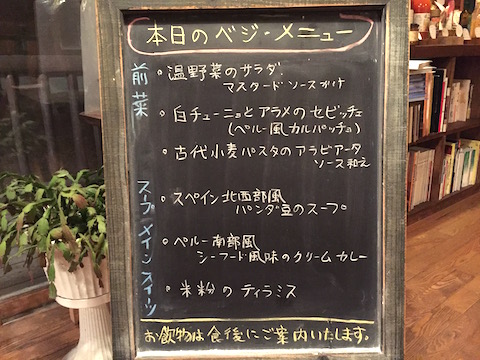 本日のベジ・メニュー
前菜
○温野菜のサラダ
マスタードソースがけ
○白チューニョとアラメのセビッチェ
(ペルー風カルパッチョ)
○古代小麦パスタのアラビアータ
ソース和え
スープ
○スペイン北西部風
パンダ豆のスープ
メイン
○ペルー南部風
シーフード風味のクリームカレー
スイーツ
○米粉のティラミス
お飲物は食後にご案内いたします。